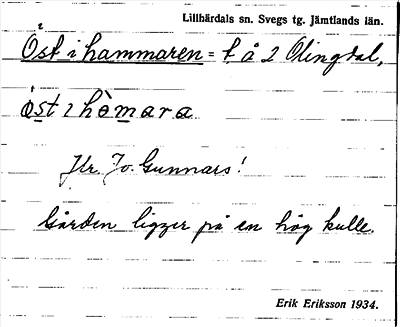 Lillhärdals sn. Svegs tg. Jämtlands län.
Öst i hammaren = t å 2 Olingdal,
öst i hòmara
Hr. Jo. Gunnars!
Gården ligger på en hög kulle.
Erik Eriksson 1934.